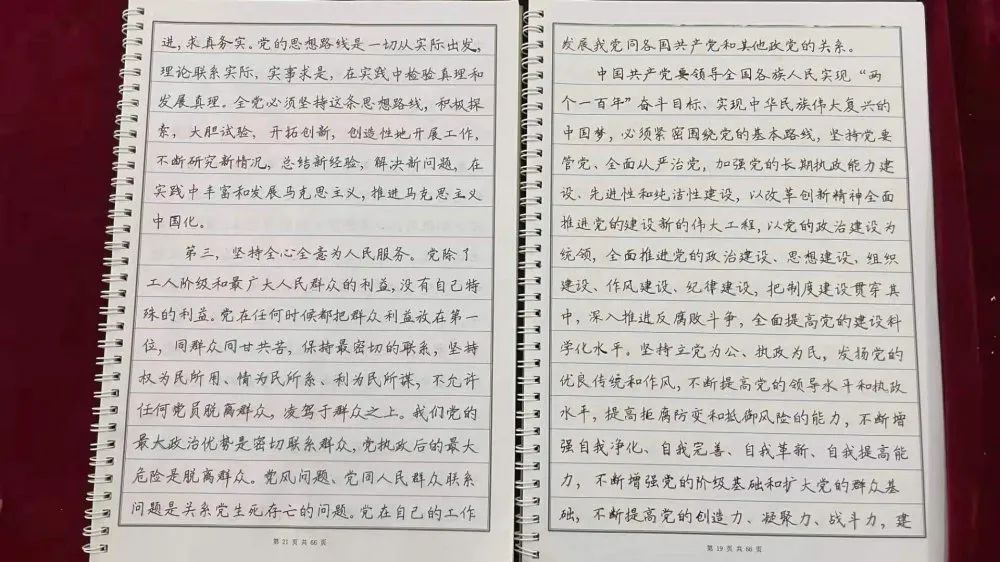 进,求真务实。党的思想路线是一切从实际出发,
理论联系实际,实事求是,在实践中检验真理和
发展真理。全党必须坚持这条思想路线,积极探
索,大胆试验,开拓创新,创造性地开展工作,
不断研究新情况,总结新经验,解决新问题,在
实践中丰富和发展马克思主义,推进马克思主义
中国化。
第三,坚持全心全意为人民服务。党除了
工人阶级和最广大人民群众的利益,没有自己特
殊的利益。党在任何时候都把群众利益放在第一
位,同群众同甘共苦,保持最密切的联系,坚持
权为民所用、情为民所系、利为民所谋,不允许
任何党员脱离群众,凌驾于群众之上。我们党的
最大政治优势是密切联系群众,党执政后的最大
危险是脱离群众。党风问题、党同人民群众联系
问题是关系党生死存亡的问题。党在自己的工作
第 21 页 共 66 页
发展我党同各国共产党和其他政党的关系。
中国共产党要领导全国各族人民实现“两
个一百年”奋斗目标、实现中华民族伟大复兴的
中国梦,必须紧密围绕党的基本路线,坚持党要
管党、全面从严治党,加强党的长期执政能力建
设、先进性和纯洁性建设,以改革创新精神全面
推进党的建设新的伟大工程,以党的政治建设为
统领,全面推进党的政治建设、思想建设、组织
建设、作风建设、纪律建设,把制度建设贯穿其
中,深入推进反腐败斗争,全面提高党的建设科
学化水平。坚持立党为公、执政为民,发扬党的
优良传统和作风,不断提高党的领导水平和执政
水平,提高拒腐防变和抵御风险的能力,不断增
强自我净化、自我完善、自我革新、自我提高能
力,不断增强党的阶级基础和扩大党的群众基
础,不断提高党的创造力、凝聚力、战斗力,建
第 19 页 共 66 页